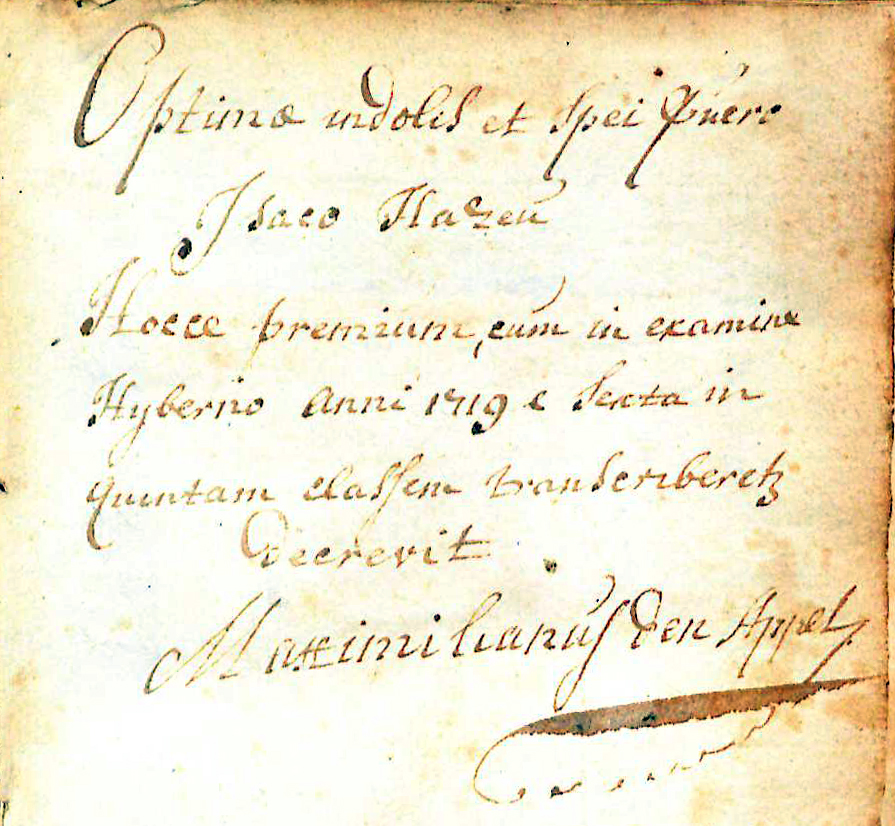 Optimæ indolis et Spei Puero
Isaco Hazeu
Hocce premium, cum in examine
Hyberno Anni 1719 e Sexta in
quintam classem transcriberetz
decrevit
Maximilianus den Appel